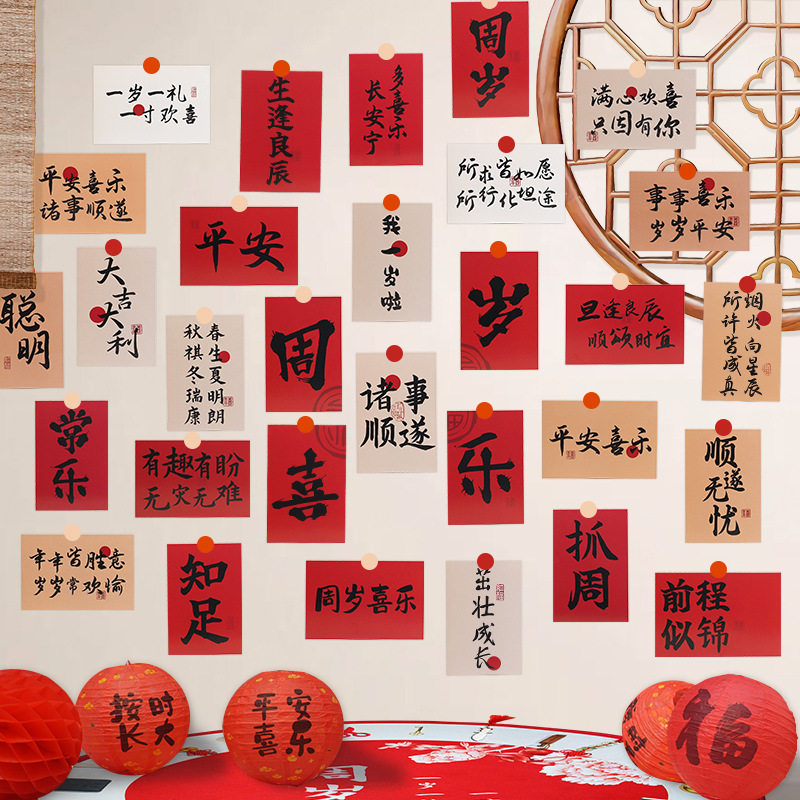 周岁
一岁一礼
一寸欢喜
生逢良辰
多喜乐
长安宁
满心欢喜
只因有你
平安喜乐
诸事顺遂
所求皆如愿
所行化坦途
事事喜乐
岁岁平安
平安
我一岁啦
大吉
大利
聪明
春生夏明朗
秋祺冬瑞康
周
岁
旦逢良辰
顺颂时宜
烟火向星辰
所许皆成真
诸事
顺遂
常乐
有趣有盼
无灾无难
喜
乐
平安喜乐
顺遂
无忧
年年皆胜意
岁岁常欢愉
知足
周岁喜乐
茁壮成长
抓周
前程
似锦
按时
长大
平安
喜乐
福
周岁